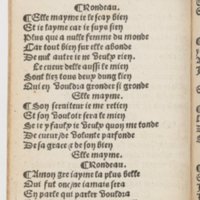 ¶Rondeau.
Elle mayme ie le scay bien
Et ie layme car ie suys sien
Plus que a nulle femme du monde
Car tout bien sur elle abonde
De nul autre ie ne veulx rien.
Le cueur delle aussi le mien
Sont liez tous deux dung lien
Qui en vouldra gronder si gronde
Elle mayme.
¶Son seruiteur ie me retien
Et son vouloir sera le mien
Se ie y faulx ie veulx quon me tonde
De cueur/de voulente parfonde
De sa grace et de son bien
Elle mayme.
¶Rondeau.
¶Amon gre iayme la plus belle
Qui fut onc/ne iamais sera
En parle qui parler vouldra